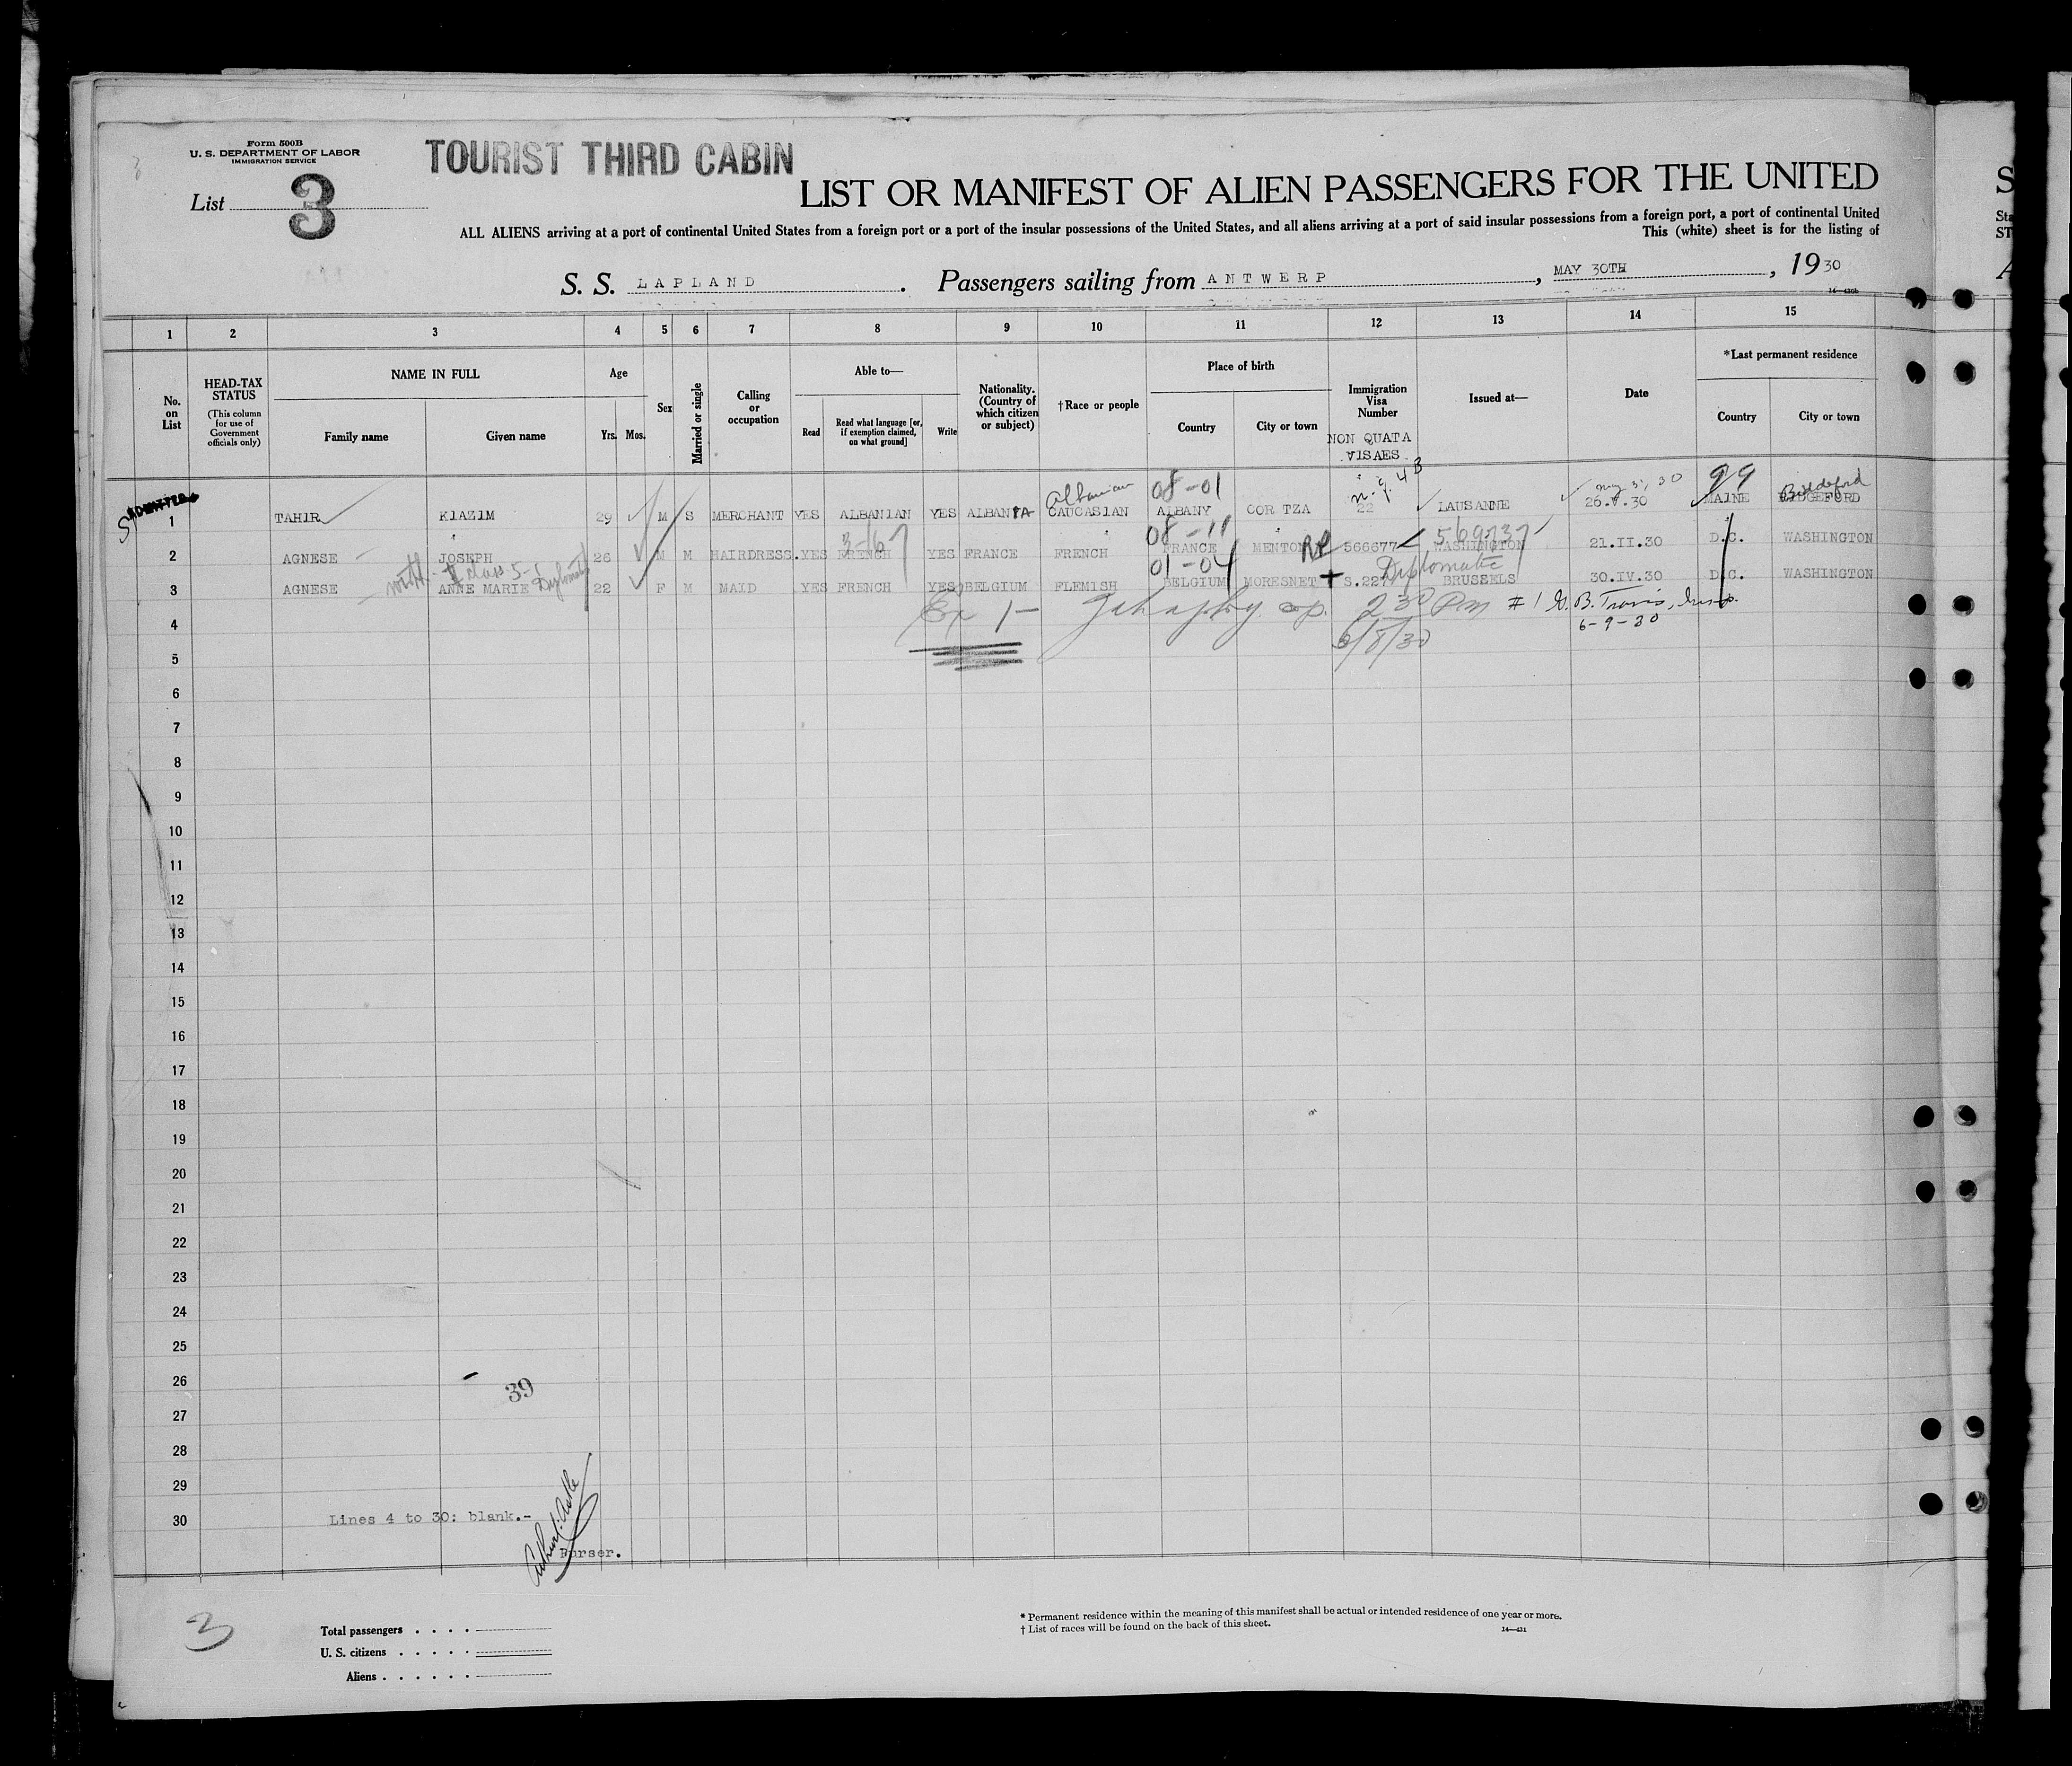 Form 500B
U. S. DEPARTMENT OF LABOR
IMMIGRATION SERVICE
TOURIST THIRD CABIN
List 3
LIST OR MANIFEST OF ALIEN PASSENGERS FOR THE UNITED
ALL ALIENS arriving at a port of continental United States from a foreign port or a port of the insular possessions of the United States, and all aliens arriving at a port of said insular possessions from a foreign port, a port of continental United
This (white) sheet is for the listing of
S. S. LAPLAND. Passengers sailing from ANTWERP, MAY 30TH, 1930
1 2 3 4 5 6 7 8 9 10 11 12 13 14 15
No. on List
HEAD-TAX STATUS
(This column for use of Government officials only)
NAME IN FULL
Family name Given name
Age
Yrs. Mos.
Sex
Married or single
Calling or occupation
Able to—
Read
Read what language [or, if exemption claimed, on what ground]
Write
Nationality. (Country of which citizen or subject)
†Race or people
Place of birth
Country City or town
Immigration Visa Number
NON QUATA VISAES.
Issued at—
Date
*Last permanent residence
Country City or town
Albanian 08-01 99 Biddeford
ADMITTED
1 TAHIR KIAZIM 29 M S MERCHANT YES ALBANIAN YES ALBANIA CAUCASIAN ALBANY COR TZA 22 LAUSANNE 26.V.30 MAINE BIDGEFORD
08-11 569737
2 AGNESE JOSEPH 26 M M HAIRDRESS. YES FRENCH YES FRANCE FRENCH FRANCE MENTON RP 566677 WASHINGTON 21.II.30 D.C. WASHINGTON
01-04 Diplomatic
3 AGNESE ANNE MARIE 22 F M MAID YES FRENCH YES BELGIUM FLEMISH BELGIUM MORESNET S.227 BRUSSELS 30.IV.30 D.C. WASHINGTON
230 Pm #1
6-9-30
4
5
6
7
8
9
10
11
12
13
14
15
16
17
18
19
20
21
22
23
24
25
26
39
27
28
29
30 Lines 4 to 30: blank.-
Purser.
3
Total passengers
U. S. citizens
Aliens
* Permanent residence within the meaning of this manifest shall be actual or intended residence of one year or more.
† List of races will be found on the back of this sheet.
14—431